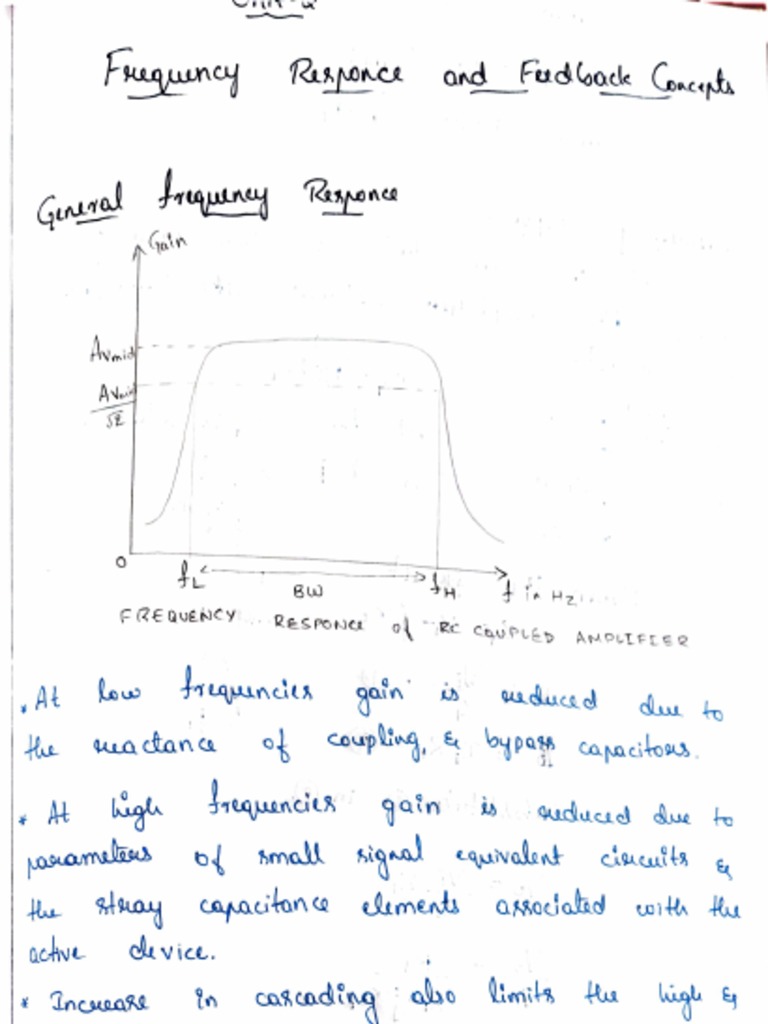 Unit-2
Frequency Responce and Feedback Concepts
General frequency Responce
Gain
Avmid
Avmid
√2
0
fL
BW
fH
f in Hz
FREQUENCY RESPONCE of RC COUPLED AMPLIFIER
. At low frequencies gain is reduced due to
the reactance of coupling, & bypass capacitors.
* At high frequencies gain is reduced due to
parameters of small signal equivalent circuits &
the stray capacitance elements associated with the
active device.
* Increase in cascading also limits the high &